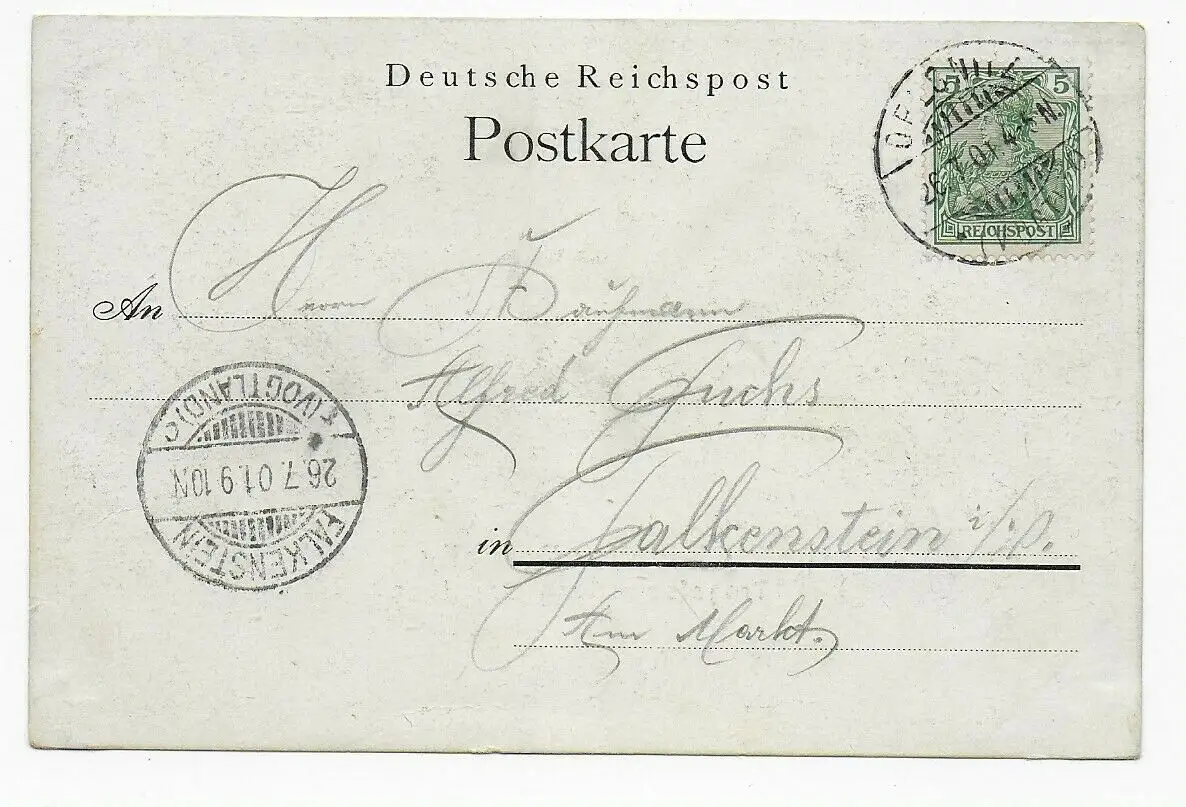 Deutsche Reichspost
Postkarte
5 5
REICHSPOST
OELSNITZ
26.7.01. 4-5N.
(VOGTL)
An Herrn Kaufmann
Alfred Fuchs
in Falkenstein i/V.
Am Markt.
FALKENSTEIN
26.7.01.9 10N
*(VOGTLAND)c